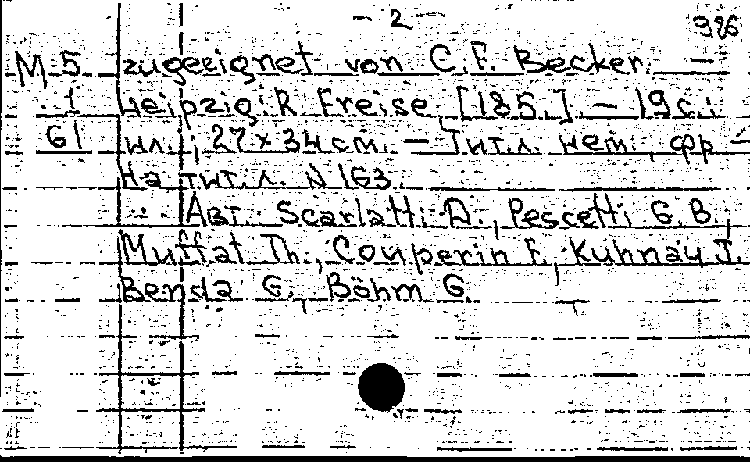 - 2 -
986
М 5 zugeeignet von C. F. Becker. -
1 Leipzig: R. Freise, [185.]. - 19 с.:
61 ил.; 27 x 34 см. - Тит.л. нем., фр -
На тит. л. N 163.
Авт.: Scarlatti D., Pescetti G. B.,
Muffat Th., Couperin F., Kuhnau J.
Benda G., Böhm G.